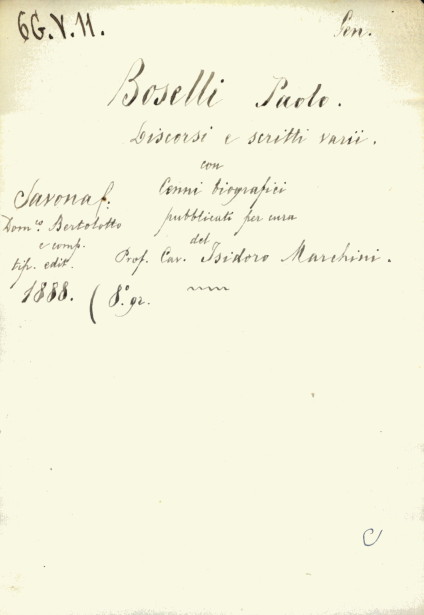 6G.V.11.
Gen.
Boselli Paolo.
Discorsi e scritti varii.
con
Cenni biografici
pubblicati per cura
del
Prof. Cav. Isidoro Marchini.
Savona f:
Dom.co Bertolotto
e comp.
tip. edit.
1888. (8.° gr.
C